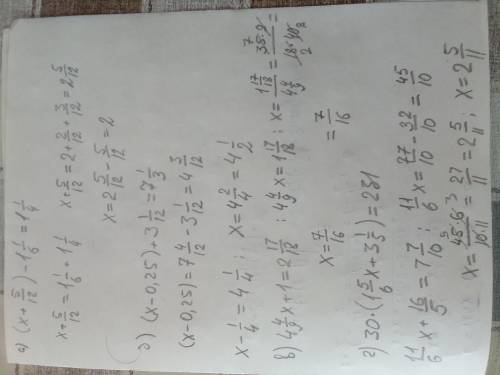 а) (x + 5/12) - 1 1/6 = 1 1/4
x + 5/12 = 1 1/6 + 1 1/4   x + 5/12 = 2 + 2/12 + 3/12 = 2 5/12
x = 2 5/12 - 5/12 = 2
б) (x - 0,25) + 3 1/12 = 7 1/3
(x - 0,25) = 7 4/12 - 3 1/12 = 4 3/12
x - 1/4 = 4 1/4 ; x = 4 2/4 = 4 1/2
в) 4 4/9 x + 1 = 2 17/18 ; 4 4/9 x = 1 17/18 ; x = 1 17/18 / 4 4/9 = 35·9 / 18·40 =
7 2 8
x = 7/16   = 7/16
г) 30·(1 5/6 x + 3 1/5) = 231
11/6 x + 16/5 = 7 7/10 ; 11/6 x = 77/10 - 32/10 = 45/10
x = 45·6 / 10·11 = 27/11 = 2 5/11 ; x = 2 5/11